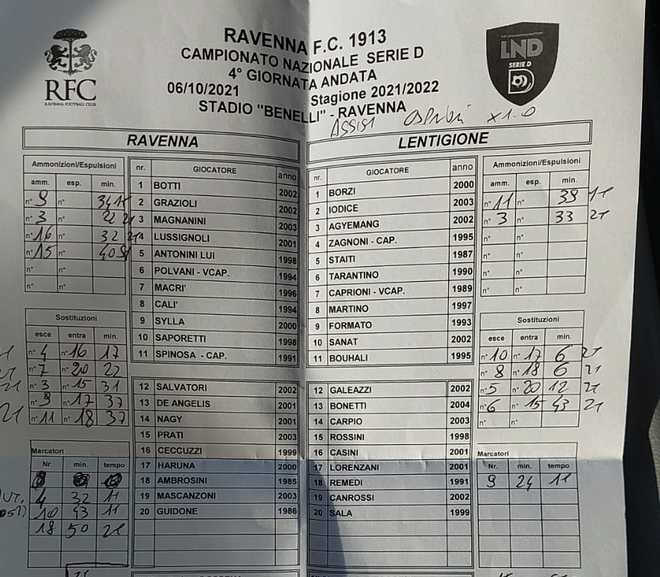 RAVENNA F.C. 1913
CAMPIONATO NAZIONALE SERIE D
4° GIORNATA ANDATA
06/10/2021 Stagione 2021/2022
STADIO "BENELLI" - RAVENNA
RFC
RAVENNA FOOTBALL CLUB
LND
SERIE D
ASSIST x 1-0
RAVENNA
LENTIGIONE
Ammonizioni/Espulsioni
amm. esp. min.
n° 9 n° 34 1t
n° 3 n° 22 2t
n° 16 n° 32 2t
n° 15 n° 40 2t
n° n°
n° n°
Sostituzioni
esce entra min.
n° 4 n° 16 17
n° 7 n° 20 22
n° 3 n° 15 31
n° 9 n° 17 37
n° 11 n° 18 37
Marcatori
Nr min. tempo
4 32 1t
10 43 1t
18 50 2t
nr. GIOCATORE anno
1 BOTTI 2002
2 GRAZIOLI 2002
3 MAGNANINI 2003
4 LUSSIGNOLI 2001
5 ANTONINI LUI 1998
6 POLVANI - VCAP. 1994
7 MACRI' 1996
8 CALI' 1994
9 SYLLA 2000
10 SAPORETTI 1998
11 SPINOSA - CAP. 1991
12 SALVATORI 2002
13 DE ANGELIS 2001
14 NAGY 2001
15 PRATI 2003
16 CECCUZZI 1999
17 HARUNA 2000
18 AMBROSINI 1985
19 MASCANZONI 2003
20 GUIDONE 1986
nr. GIOCATORE anno
1 BORZI 2000
2 IODICE 2003
3 AGYEMANG 2002
4 ZAGNONI - CAP. 1995
5 STAITI 1987
6 TARANTINO 1990
7 CAPRIONI - VCAP. 1989
8 MARTINO 1997
9 FORMATO 1993
10 SANAT 2002
11 BOUHALI 1995
12 GALEAZZI 2002
13 BONETTI 2004
14 CARPIO 2003
15 ROSSINI 1998
16 CASINI 2001
17 LORENZANI 2001
18 REMEDI 1991
19 CANROSSI 2002
20 SALA 1999
Ammonizioni/Espulsioni
amm. esp. min.
n° 11 n° 39 1t
n° 3 n° 33 2t
n° n°
n° n°
n° n°
n° n°
Sostituzioni
esce entra min.
n° 10 n° 17 6 2t
n° 8 n° 18 6 2t
n° 5 n° 20 12 2t
n° 6 n° 15 43 2t
n° n°
Marcatori
Nr. min. tempo
9 24 1t